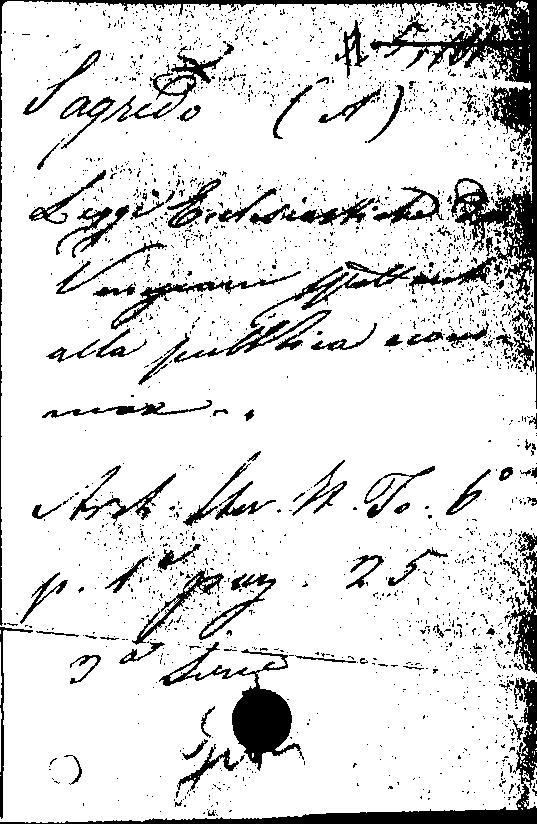 Sagredo (A)
Leggi Ecclesiastiche
Veneziane
alla pubblica econ-
mia.
Arch. Stor. It. To. 6º
p. 1ª pag. 25
3ª Serie